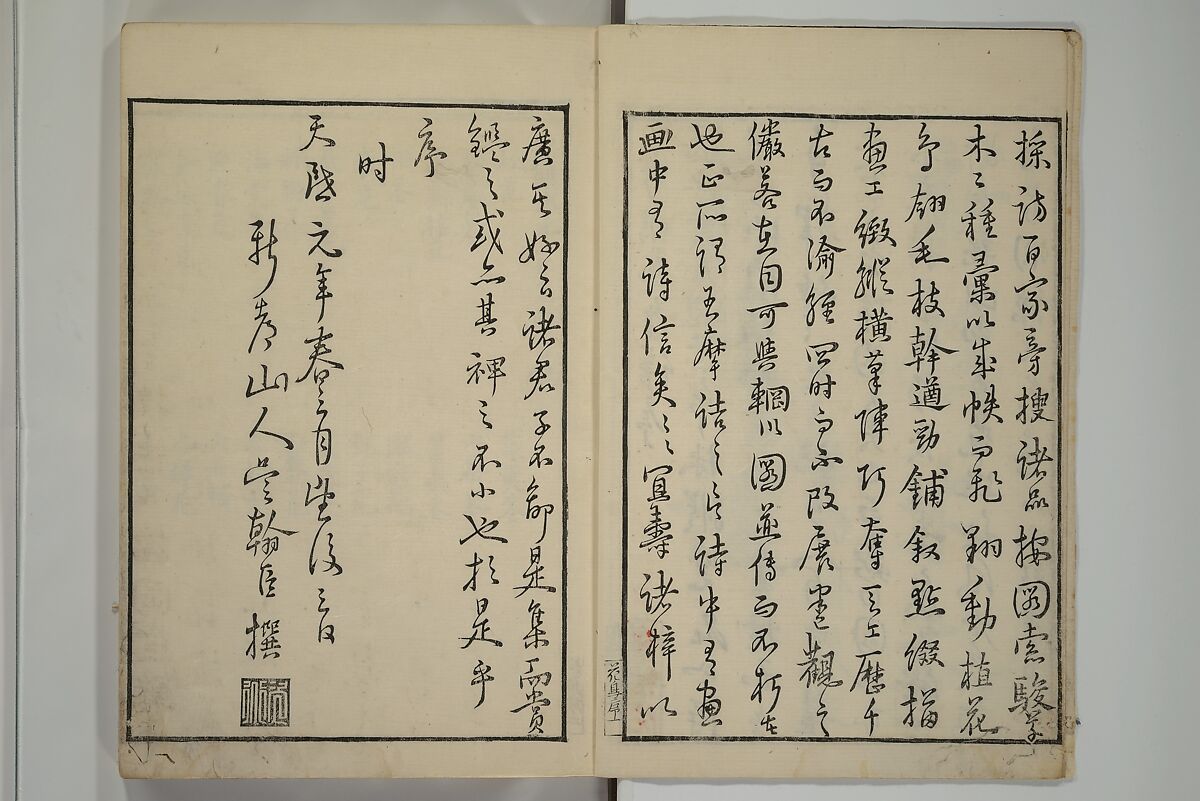 採訪百家旁搜諸品按圖索駿草
木之種彙以成帙而飛翔動植花
鳥翎毛枝幹遒勁鋪叙點綴描
畫工緻縱橫筆陣巧奪天工歷千
古而不渝經四時而不改展卷觀之
儼若在目可與輞川圖並傳而不朽者
也正所謂王摩詰之言詩中有畫
画中有詩信矣々宜壽諸梓以
廣其好云諸君子不鄙是集而賞
鑑之或亦其裨之不小也於是乎
序
时
天啓元年春三月望後三日
新都山人吳翰臣撰